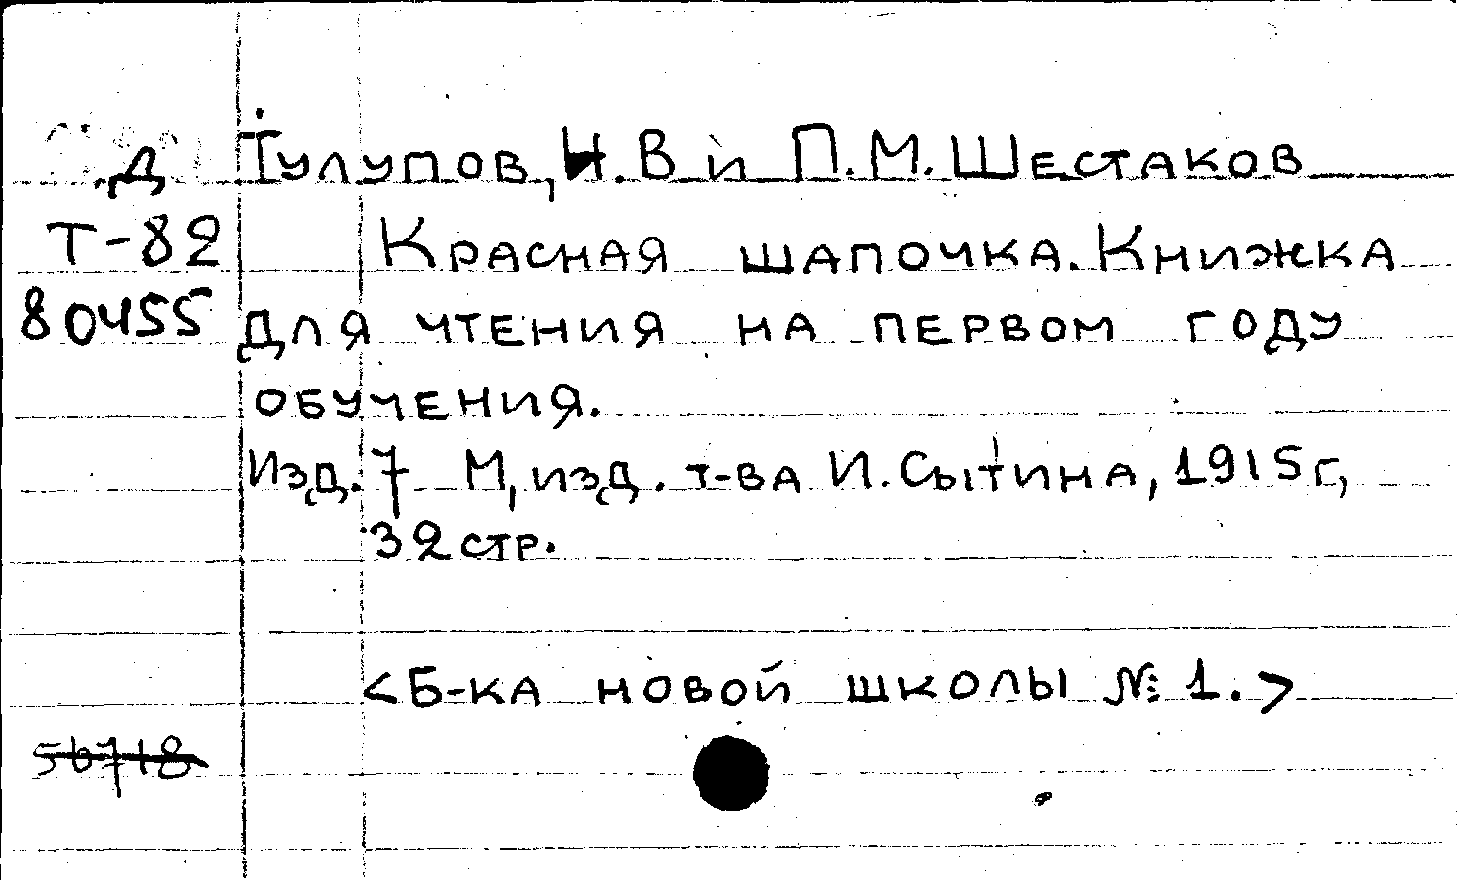 Д Тулупов, Н.В и П.М. Шестаков
Т-82 Красная шапочка. Книжка
80455 для чтения на первом году
обучения.
Изд. 7 М, изд. т-ва И. Сытина, 1915 г,
32 стр.
<Б-ка новой школы № 1.>
56718